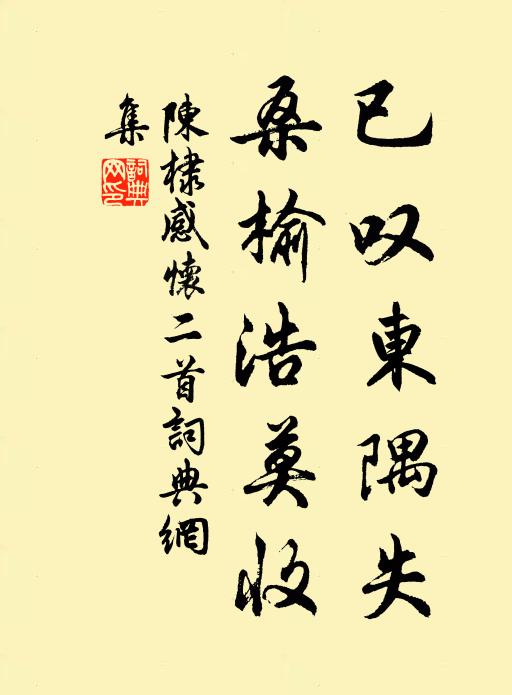 已叹東隅失
桑榆浩莫收
陳棣感懷二首詞典網
集
詞典網印